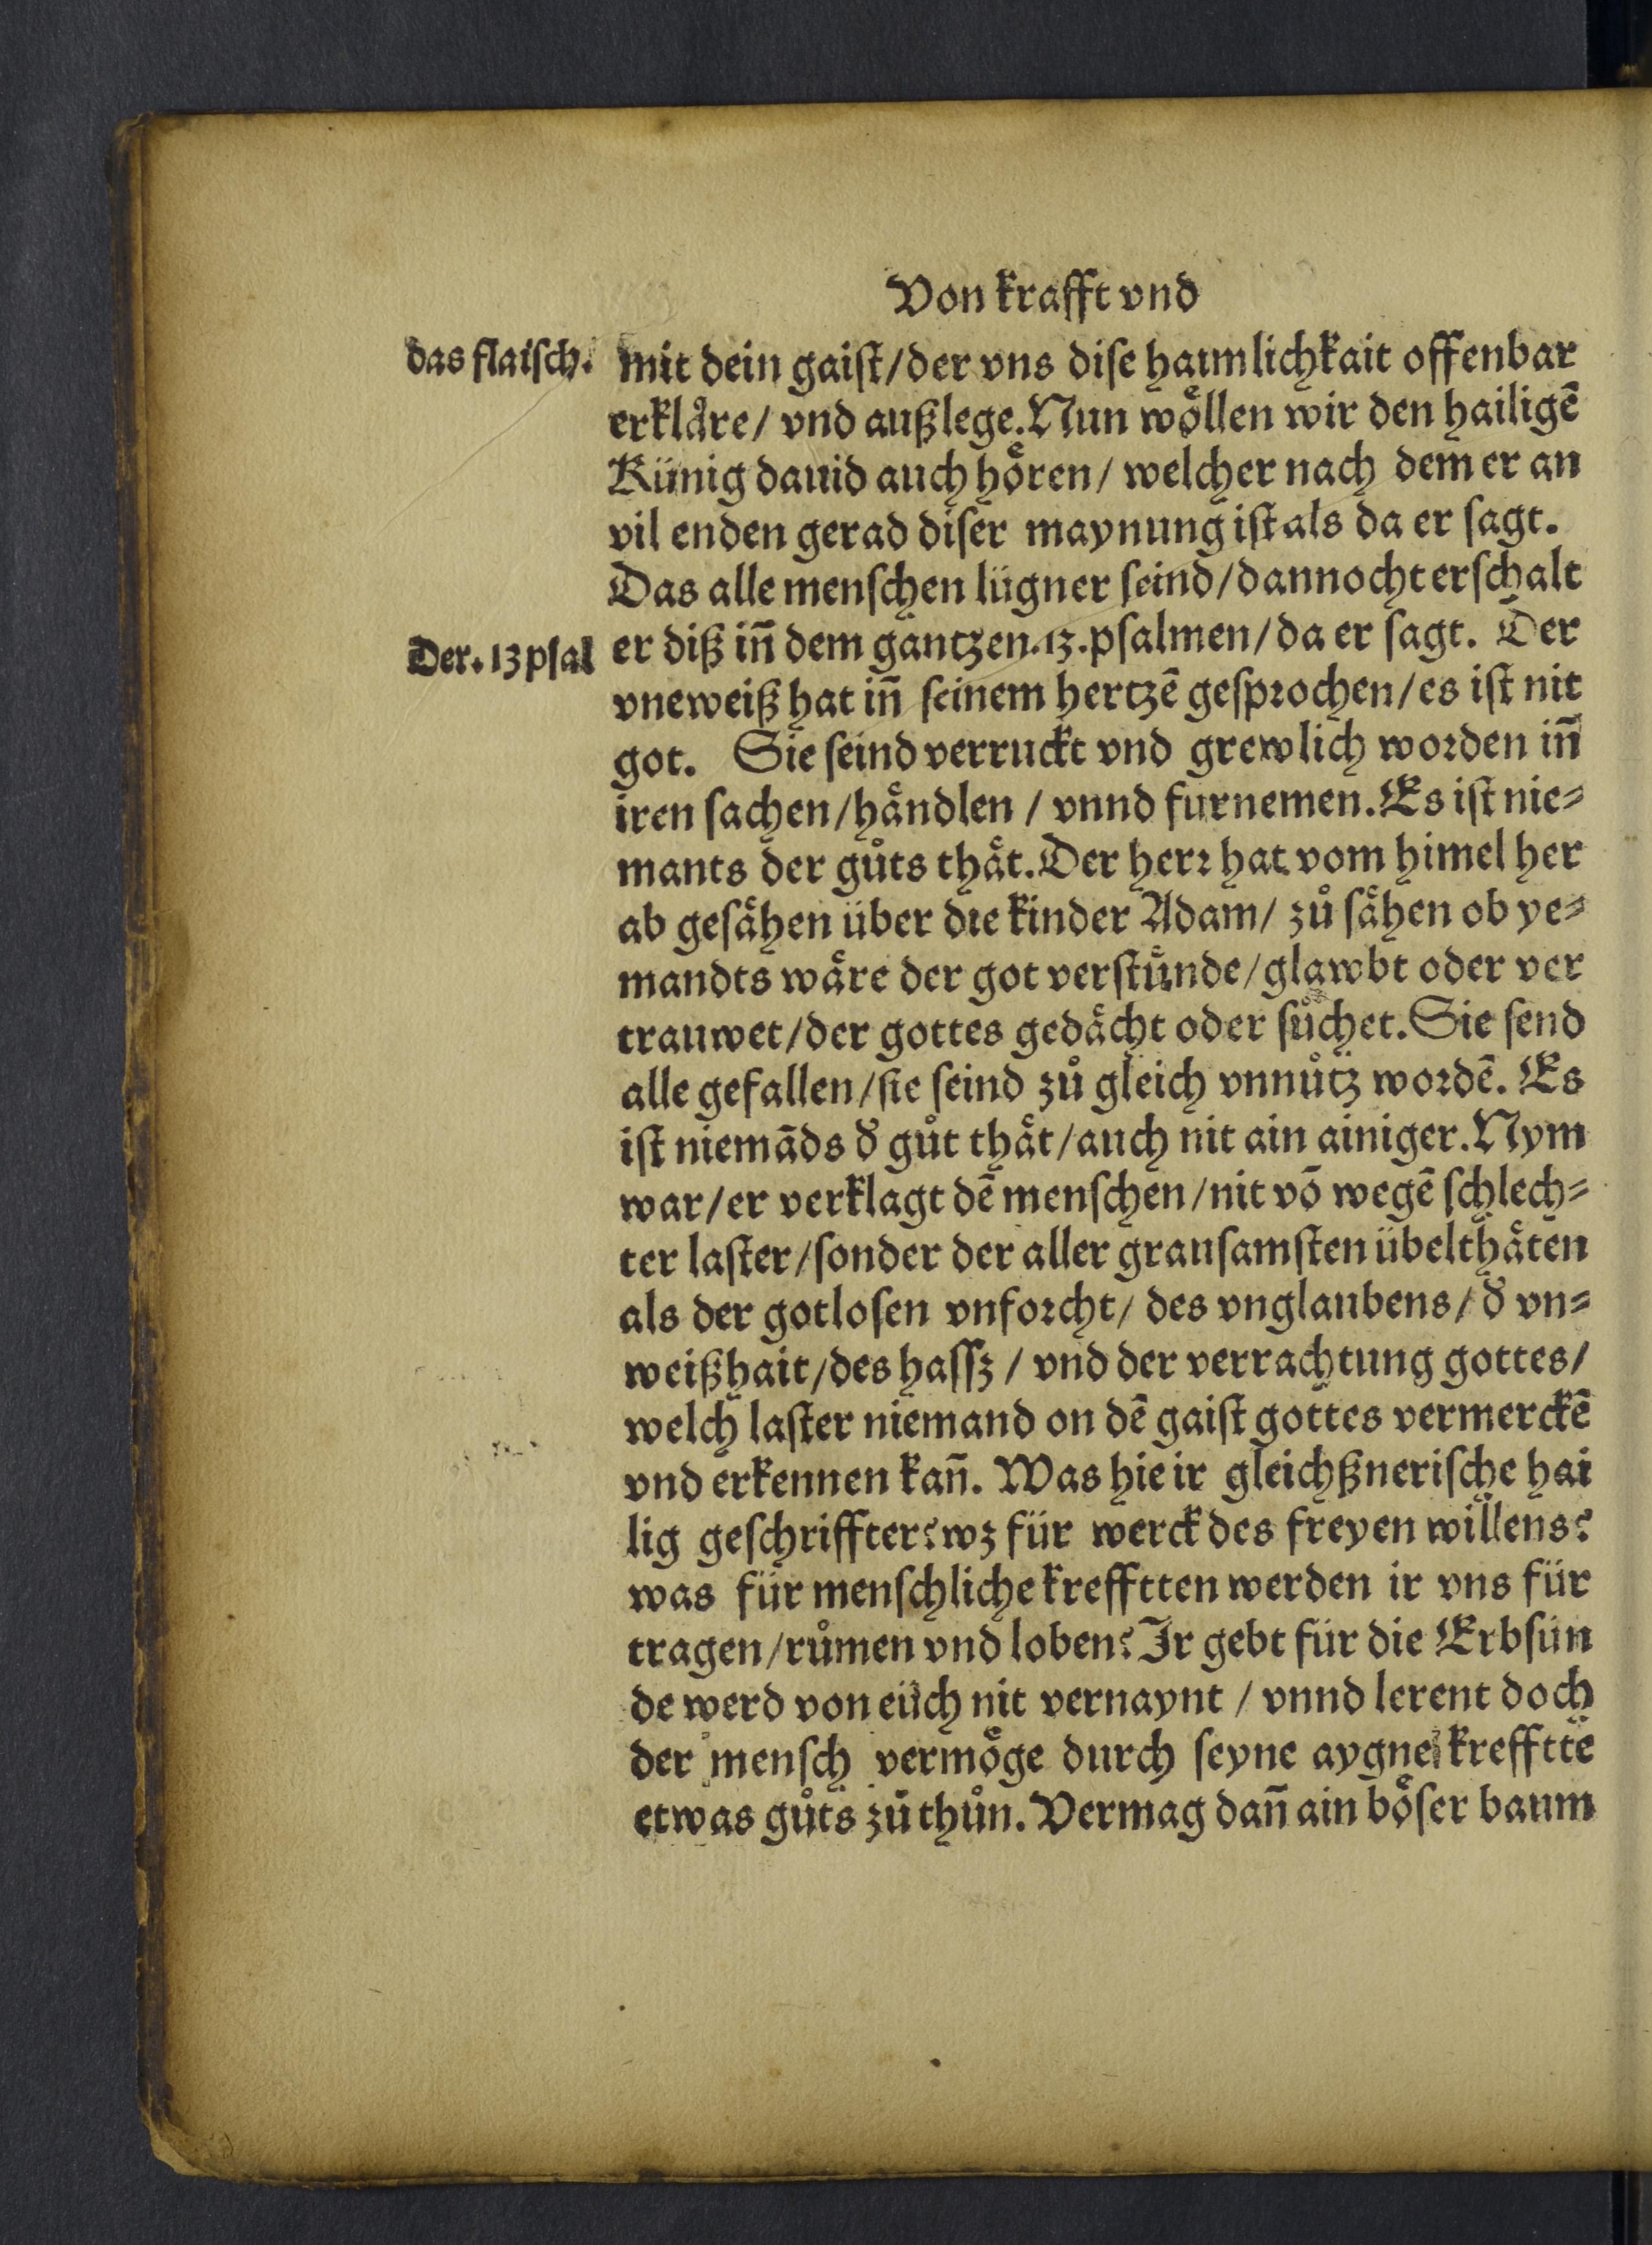 Von krafft vnd
das flaisch.
mit dein gaist/der vns dise haimlichkait offenbar
erklåre/ vnd außlege.Nun woͤllen wir den hailigē
Künig dauid auch hoͤren/ welcher nach dem er an
vil enden gerad diser maynung ist als da er sagt.
Das alle menschen lügner seind/dannocht erschalt
Der. 13 psal
er diß iñ dem gantzen.13.psalmen/da er sagt. Der
vneweiß hat iñ seinem hertzē gesprochen/es ist nit
got. Sie seind verruckt vnd grewlich worden iñ
iren sachen/haͤndlen / vnnd furnemen.Es ist nie⸗
mants der gůts thaͤt.Der herr hat vom himel her
ab gesaͤhen über die kinder Adam/ zů saͤhen ob ye⸗
mandts waͤre der got verstuͤnde/glawbt oder ver
trauwet/der gottes gedaͤcht oder sůchet.Sie send
alle gefallen/sie seind zů gleich vnnůtz wordē. Es
ist niemāds d̄ gůt thaͤt/auch nit ain ainiger.Nym
war/er verklagt dē menschen/nit vō wegē schlech⸗
ter laster/sonder der aller grausamsten übelthaͤten
als der gotlosen vnforcht/ des vnglaubens/ d̄ vn⸗
weißhait/des hassz / vnd der verrachtung gottes/
welch laster niemand on dē gaist gottes vermerckē
vnd erkennen kañ. Was hie ir gleichßnerische hai
lig geschriffter?wz für werck des freyen willens?
was für menschliche krefftten werden ir vns für
tragen/růmen vnd loben?Ir gebt für die Erbsün
de werd von eüch nit vernaynt / vnnd lerent doch
der mensch vermoͤge durch seyne aygne krefftte
etwas gůts zů thůn. Vermag dañ ain boͤser baum